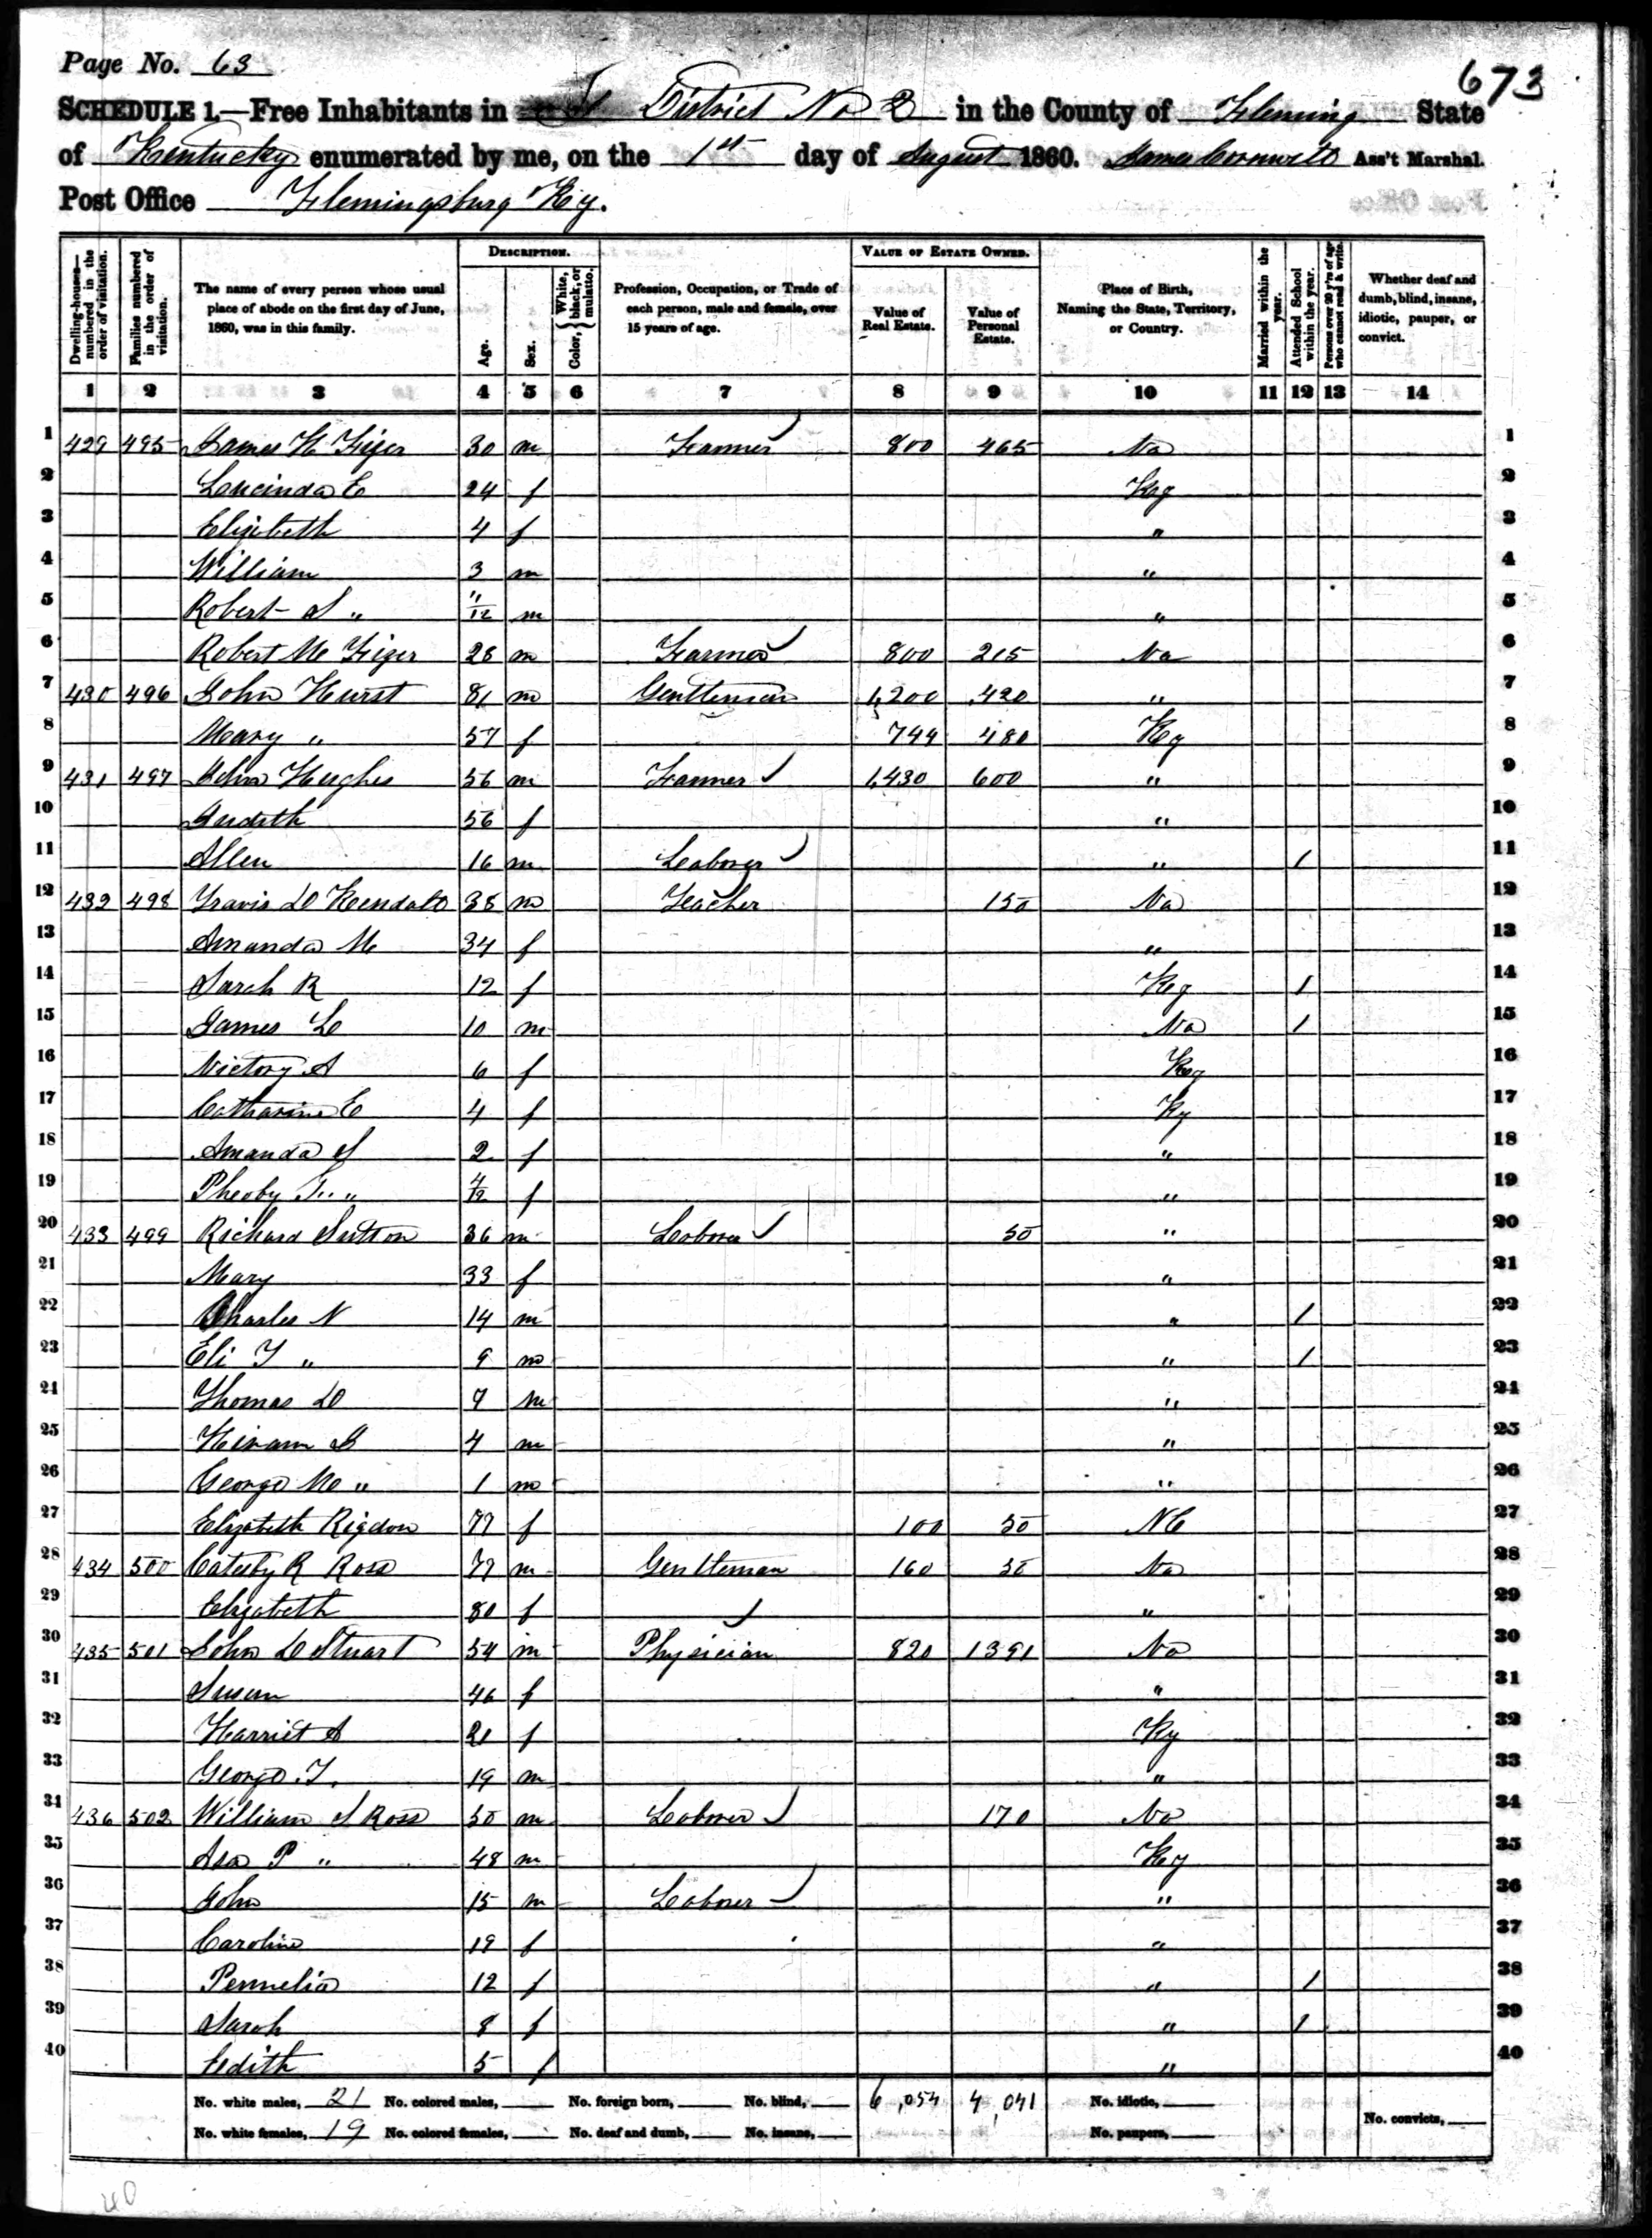 Page No. 63
673
SCHEDULE 1.—Free Inhabitants in District No 2 in the County of Fleming State
of Kentucky enumerated by me, on the 1st day of August 1860. James Cornwell Ass't Marshal.
Post Office Flemingsburg Ky.
Dwelling-houses—numbered in the order of visitation. Families numbered in the order of visitation. The name of every person whose usual place of abode on the first day of June, 1860, was in this family. DESCRIPTION. Age. Sex. Color, { White, black, or mulatto. Profession, Occupation, or Trade of each person, male and female, over 15 years of age. VALUE OF ESTATE OWNED. Value of Real Estate. Value of Personal Estate. Place of Birth, Naming the State, Territory, or Country. Married within the year. Attended School within the year. Persons over 20 y'rs of age who cannot read & write. Whether deaf and dumb, blind, insane, idiotic, pauper, or convict.
1 2 3 4 5 6 7 8 9 10 11 12 13 14
1 429 495 James H Figer 30 m Farmer 800 465 Va 1
2 Lucinda E 24 f Ky 2
3 Elizabeth 4 f " 3
4 William 3 m " 4
5 Robert S " 11/12 m " 5
6 Robert M Figer 28 m Farmer 800 215 Va 6
7 430 496 John Hurst 81 m Gentleman 1,200 420 " 7
8 Mary " 57 f 744 480 Ky 8
9 431 497 John Hughes 56 m Farmer 1,430 600 " 9
10 Judith 56 f " 10
11 Allen 16 m Laborer " / 11
12 432 498 Travis D Kendall 38 m Teacher 150 Va 12
13 Amanda M 34 f " 13
14 Sarah R 12 f Ky / 14
15 James L 10 m Va / 15
16 Victory A 6 f Ky 16
17 Catharine E 4 f Ky 17
18 Amanda J 2 f " 18
19 Pheoby T " 4/12 f " 19
20 433 499 Richard Sutton 36 m Laborer 50 " 20
21 Mary 33 f " 21
22 Charles N 14 m " / 22
23 Eli T " 9 m " / 23
24 Thomas D 7 m " 24
25 Hiram B 4 m " 25
26 George M " 1 m " 26
27 Elizabeth Rigdon 77 f 100 50 NC 27
28 434 500 Catesby R Ross 77 m Gentleman 160 50 Va 28
29 Elizabeth 80 f " 29
30 435 501 John D Stuart 54 m Physician 820 1391 Va 30
31 Susan 46 f " 31
32 Harriet A 21 f Ky 32
33 George T. 19 m " 33
34 436 502 William S Ross 50 m Laborer 170 Va 34
35 Asa P " 48 m Ky 35
36 John 15 m Laborer " 36
37 Caroline 19 f " 37
38 Permelia 12 f " / 38
39 Sarah 8 f " / 39
40 Edith 5 f " 40
No. white males, 21 No. colored males, No. foreign born, No. blind, 6,054 4,041 No. idiotic,
No. white females, 19 No. colored females, No. deaf and dumb, No. insane, No. paupers, No. convicts,
40